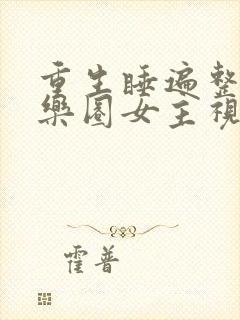 重生睡遍整
樂園女主視
霍普